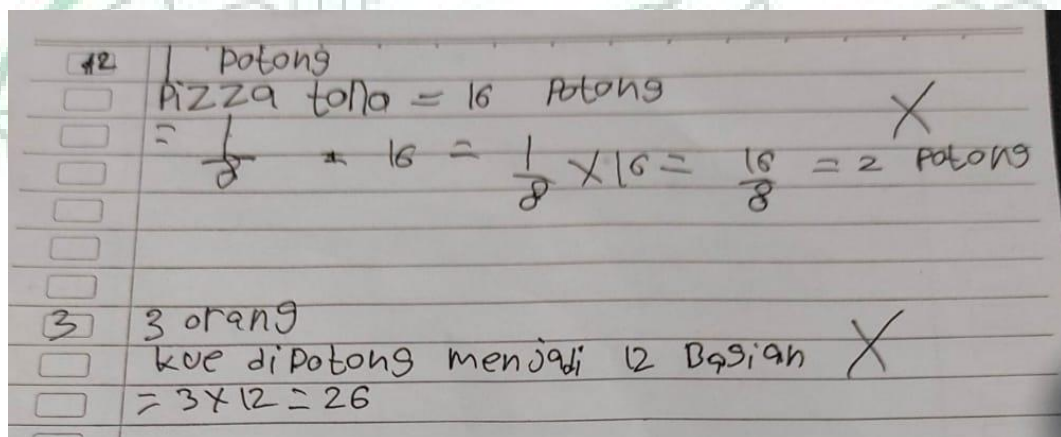 2 1 potong
Pizza tono = 16 Potong
= 1/8 * 16 = 1/8 × 16 = 16/8 = 2 Potong
3 3 orang
kue dipotong menjadi 12 Bagian
= 3 × 12 = 26